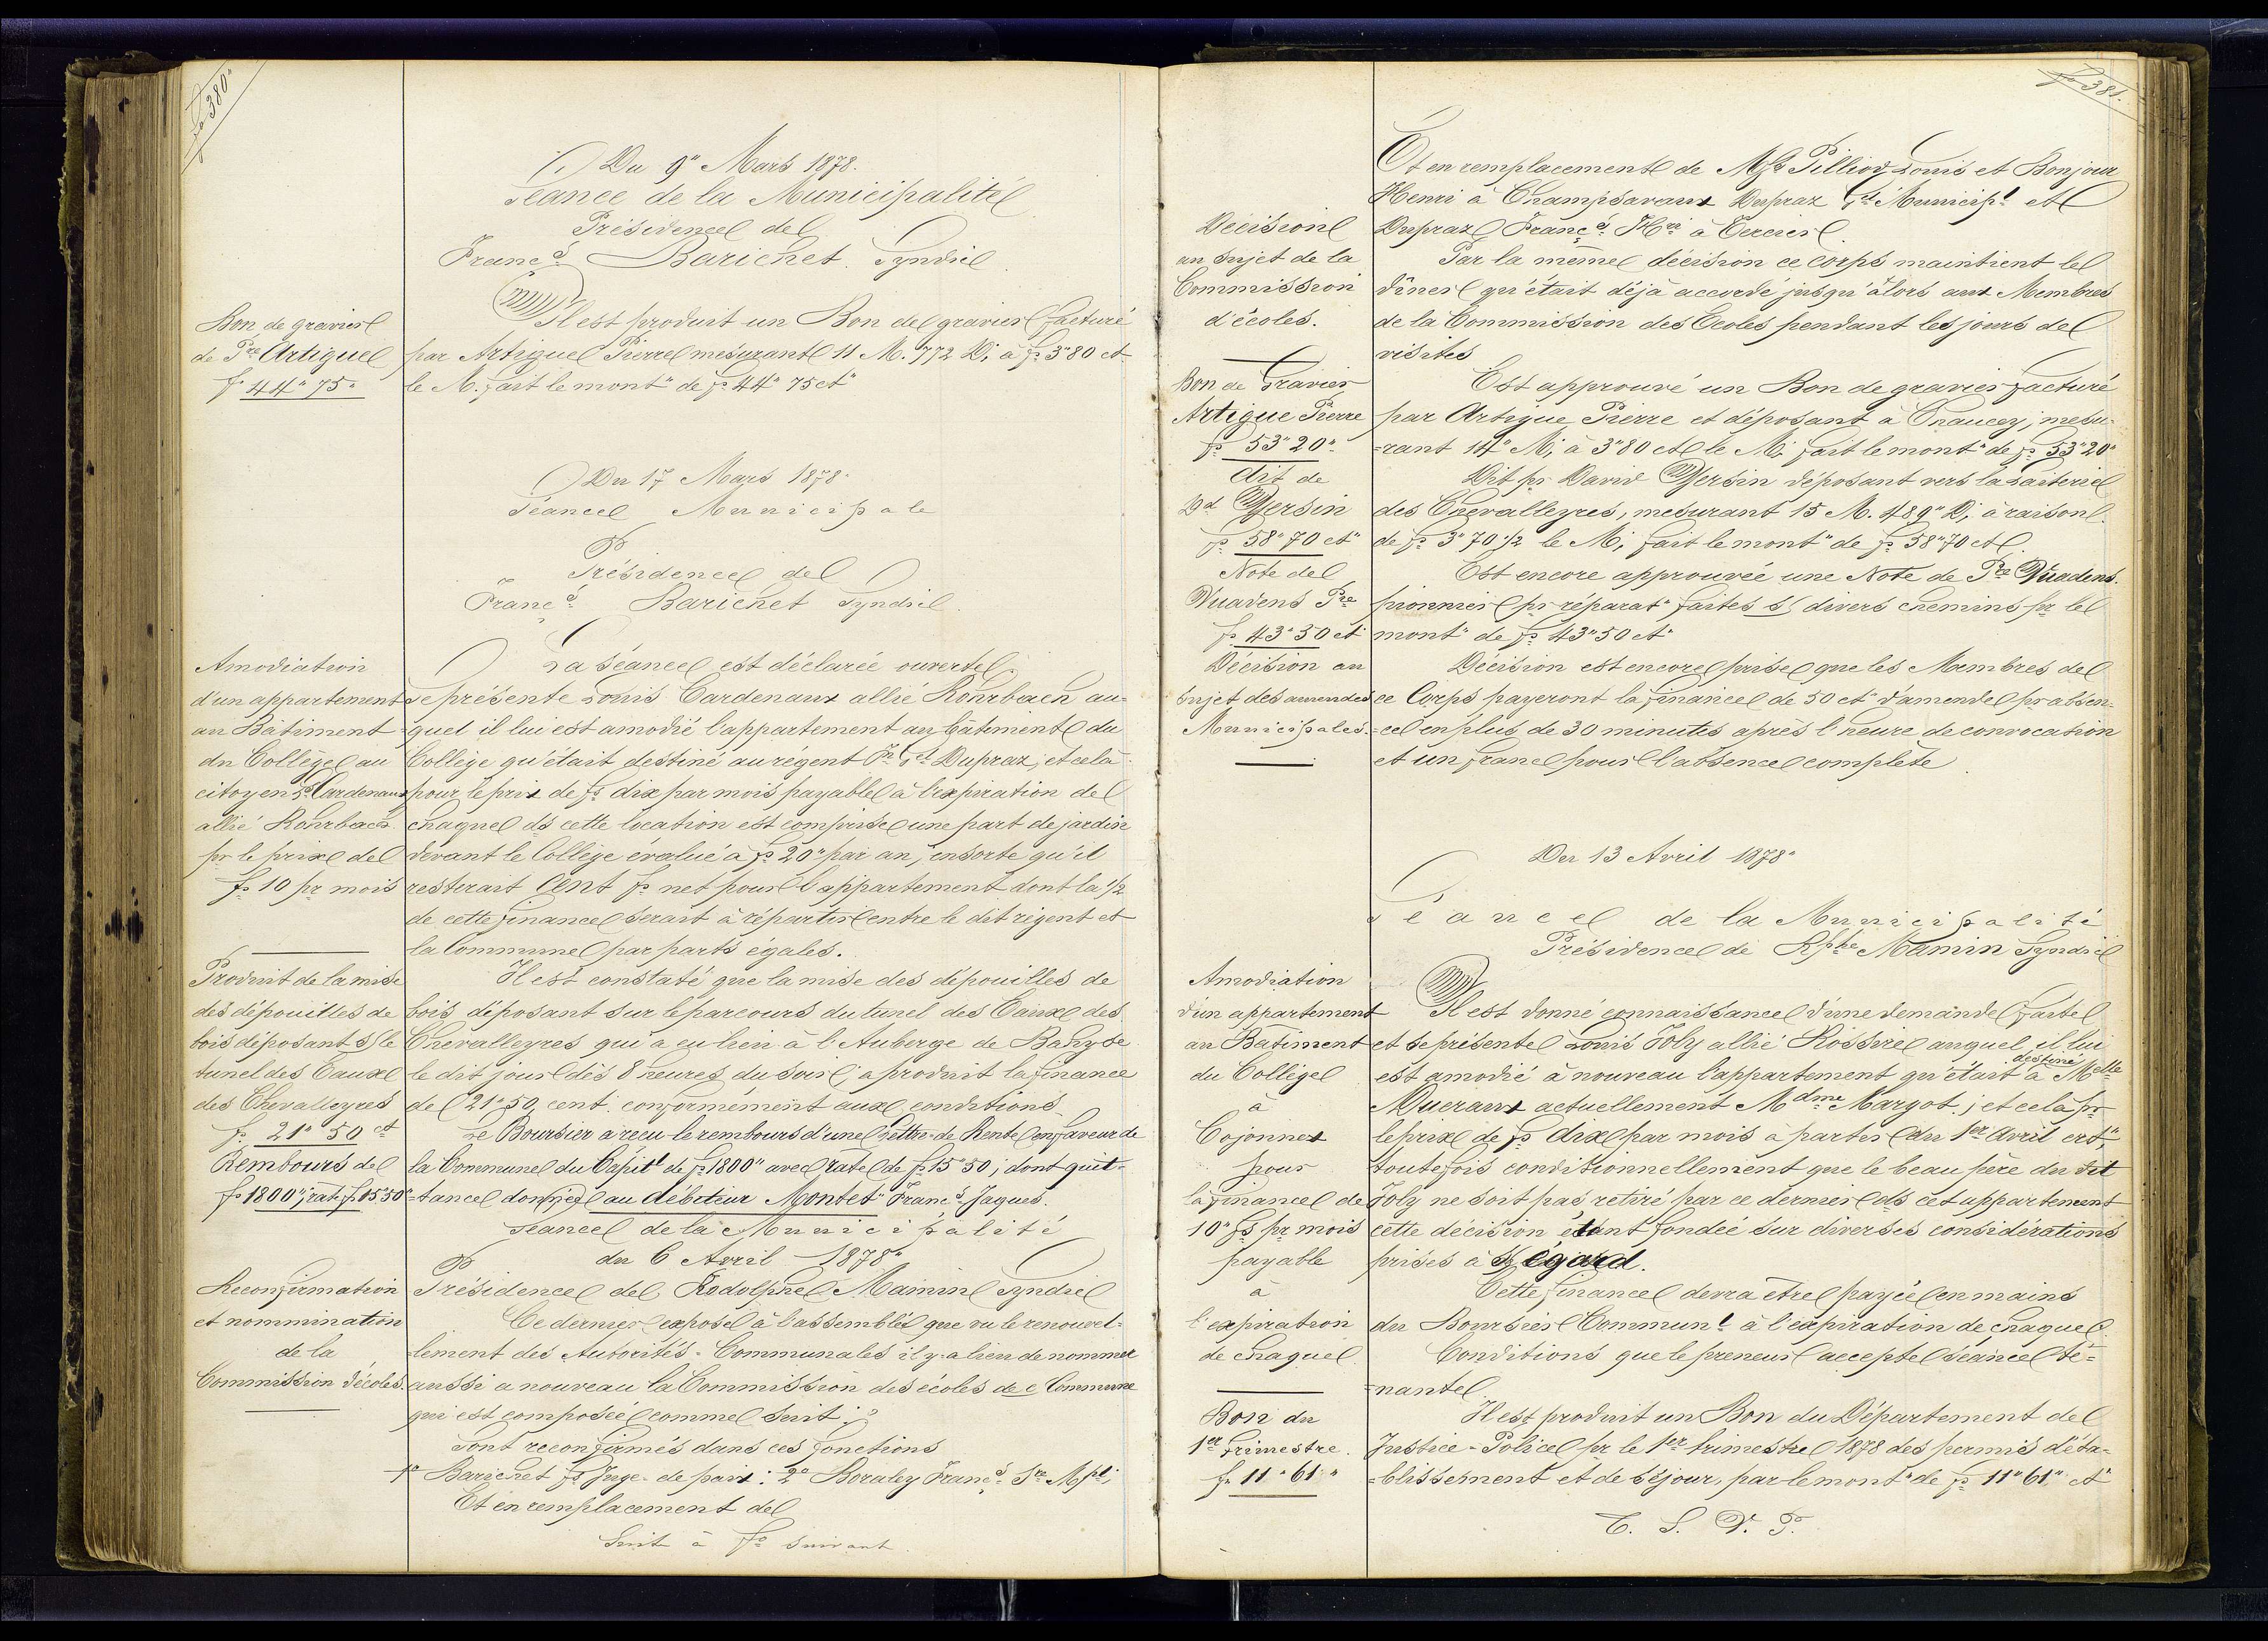 fo 380"
Du 9" Mars 1878.
Séance de la Municipalité
Présidence de
Franç.s Barichet. Syndic
Bon de gravier
de Pre Artigue
fs 44" 75"
Il est produit un Bon de gravier facturé
par Artigue Pierre mesurant 11 M. 772 D; à fs 3"80 ct
le M. fait le mont" de fs 44" 75 ct"
Du 17 Mars 1878"
Séance Municipale
Présidence de
Franç.s Barichet Syndic
Amodiation
d'un appartement
au Bâtiment
du Collège au
citoyen Ls Cardenaux
allié Rohrbach
pr le prix de
fs 10 pr mois
La séance est déclarée ouverte
Se présente Louis Cardenaux allié Rohrbach au-
quel il lui est amodié l'appartement au bâtiment du
Collège qu'était destiné au régent Dupraz; et cela
pour le prix de fs dix par mois payable à l'expiration de
chaque ds cette location est comprise une part de jardin
devant le Collège évalué à fs 20" par an, ensorte qu'il
resterait cent fs net pour l'appartement dont la 1/2
de cette finance serait à répartir entre le dit régent et
la Commune par parts égales.
Produit de la mise
des dépouilles de
bois déposant s/ le
tunel des Eaux
des Chevalleyres
fs 21" 50 ct
Il est constaté que la mise des dépouilles de
bois déposant sur le parcours du tunel des Eaux des
Chevalleyres qui a eu lieu à l'Auberge de Bahyse
le dit jour dès 8 heures du soir, a produit la finance
de 21" 50 cent. conformément aux conditions
Rembours de
fs 1800", rate fs 15"50"
Le Boursier a reçu le rembours d'une Lettre de Rente en faveur de
la Commune du Capit.l de fs 1800" avec rate de fs 15"50; dont quit-
=tance donnée au débiteur Montet" Franç.s Jaques.
Séance de la Municipalité
du 6 Avril 1878"
Présidence de Rodolphe Mamin Syndic
Reconfirmation
et nommination
de la
Commission d'écoles.
Ce dernier expose à l'assemblée que vu le renouvel=
=lement des Autorités Communales il y a lieu de nommer
aussi a nouveau la Commission des écoles de c/ Commune
qui est composée comme suit :
Sont reconfirmés dans ces fonctions
1° Barichet fs Juge de paix : 2° Boraley Franç.s Mpl;
Et en remplacement de
Suit à fo suivant
fo 381.
Et en remplacement de Mrs Pilliod Louis et Bonjour
Henri à Champsavaux Dupraz Gd Municip.l et
Dupraz Franç.s Hri à Tercier
Décision
au sujet de la
Commission
d'écoles.
Par la même décision ce corps maintient le
dîner qu'était déjà accordé jusqu'àlors aux Membres
de la Commission des Ecoles pendant les jours de
visites
Bon de Gravier
Artigue Pierre
fs 53"20"
Est approuvé un Bon de gravier facturé
par Artigue Pierre et déposant à Chaucey; mesu-
=rant 14" M; à 3"80 ct le M. fait le mont" de fs 53"20"
dit de
Dd Yersin
fs 58"70 ct"
Dit pr David Yersin déposant vers la Laiterie
des Chevalleyres, mesurant 15 M. 489" D; à raison
de fs 3"70 1/2 le M; fait le mont" de fs 58"70 ct
Note de
Vuadens Pre
fs 43"50 ct
Est encore approuvée une Note de Pre Vuadens.
pionnier pr réparat" faites s/ divers chemins pr le
mont" de fs 43"50 ct"
Décision au
sujet des amendes
Municipales.
Décision est encore prise que les Membres de
ce Corps payeront la finance de 50 ct" d'amende pr absen=
=ce en plus de 30 minutes après l'heure de convocation
et un franc pour l'absence complète
Du 13 Avril 1878"
Séance de la Municipalité
Présidence de Rphe Mamin Syndic
Amodiation
d'un appartement
au Batiment
du Collège
à
Cojonnex
pour
la finance de
10" fs pr mois
payable
à
l'expiration
de chaque
Il est donné connaissance d'une demande faite
et se présente Louis Joly allié Rossire auquel il lui
est amodié à nouveau l'appartement qu'était destiné à Melle
Ducraux actuellement Mdme Margot; et cela pr
le prix de fs dix par mois à partir du 1er Avril crt,
toutefois conditionnellement que le beau père du dit
Joly ne soit pas retiré par ce dernier ds cet appartement
cette décision étant fondée sur diverses considérations
prises à s/ égard.
Cette finance devra être payée en mains
du Boursier Commun.l à l'expiration de chaque
Conditions que le preneur accepte séance te=
=nante
Bon du
1er Trimestre.
fs 11" 61"
Il est produit un Bon du Département de
Justice-Police pr le 1er trimestre 1878 des permis d'éta=
=blissement et de séjour, par le mont" de fs 11"61" ct"
T. S. V. P.